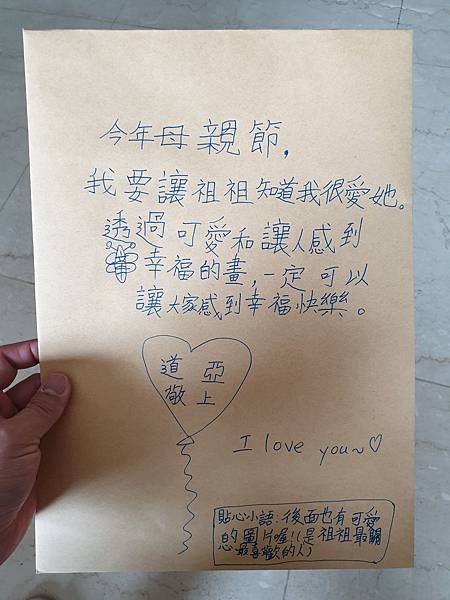 今年母親節，
我要讓祖祖知道我很愛她。
透過可愛和讓人感到
幸福的畫，一定可以
讓大家感到幸福快樂。
道亞
敬上
I love you~♡
貼心小語：後面也有可愛
的圖片喔！（是祖祖最關
心最喜歡的人）